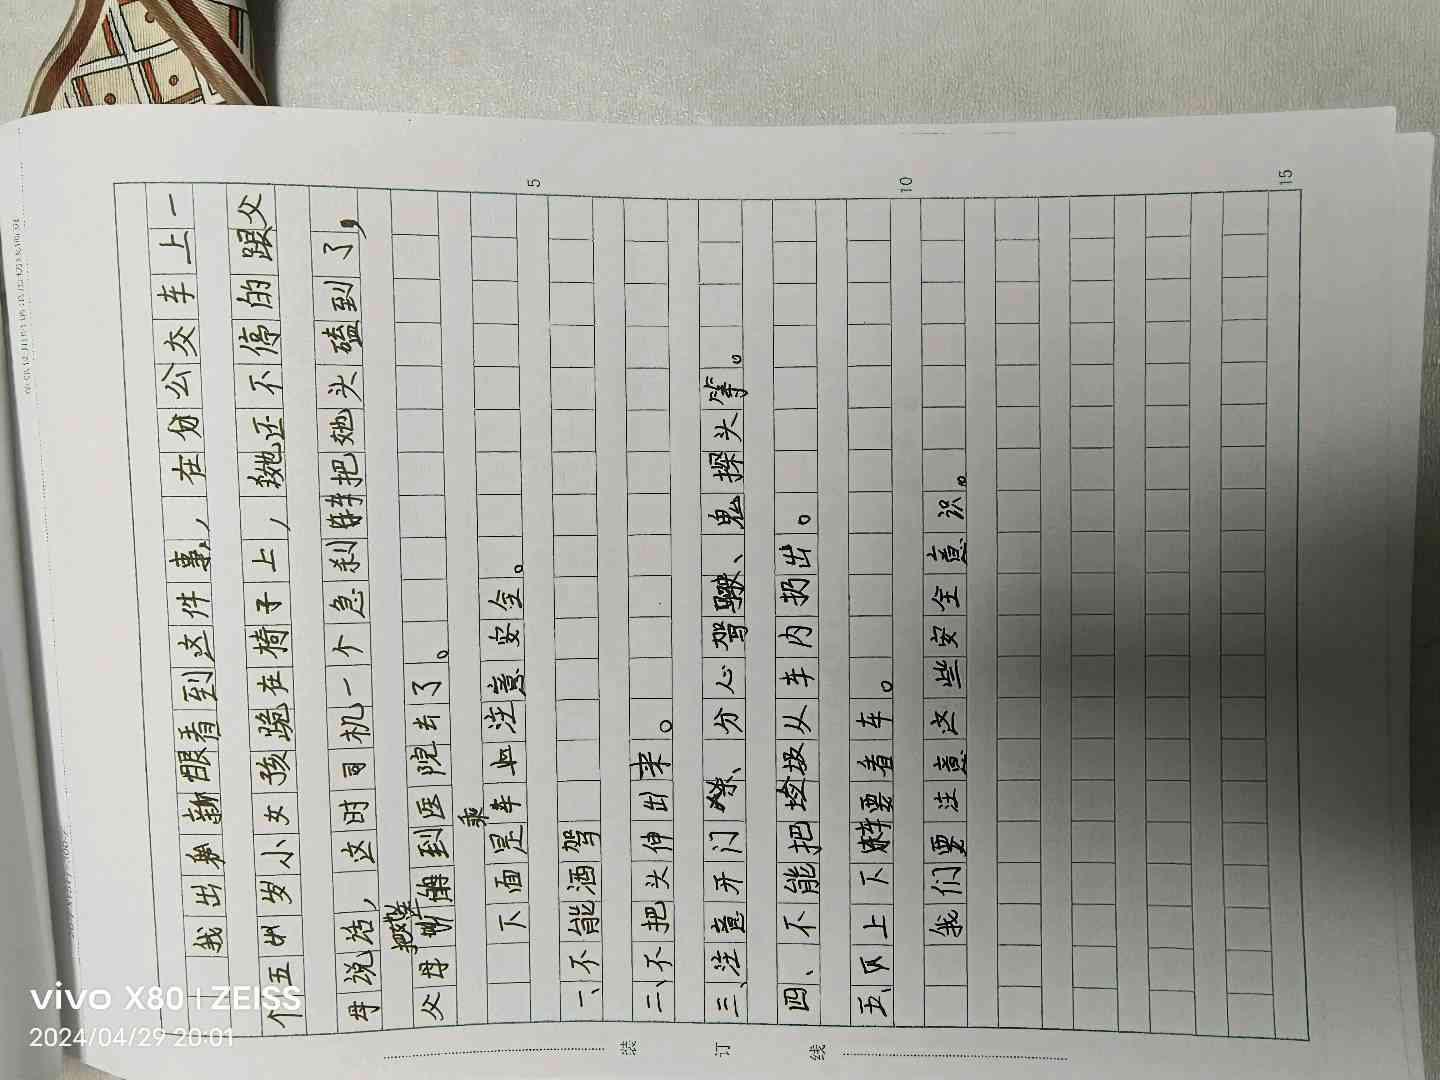 我出眼看到这件事，在公交车上一
个五岁小女孩跪在椅子上，她还不停的跟父
母说话，这时司机一个急刹车把她头磕到了，
父母把她送到医院去了。
下面是乘车注意安全。
一、不能酒驾
二、不把头伸出来。
三、注意开门杀、分心驾驶、鬼探头等。
四、不能把垃圾从车内扔出。
五、上下车要看车。
我们要注意这些安全意识。
5
10
15
装 订 线
vivo X80 | ZEISS
2024/04/29 20:01